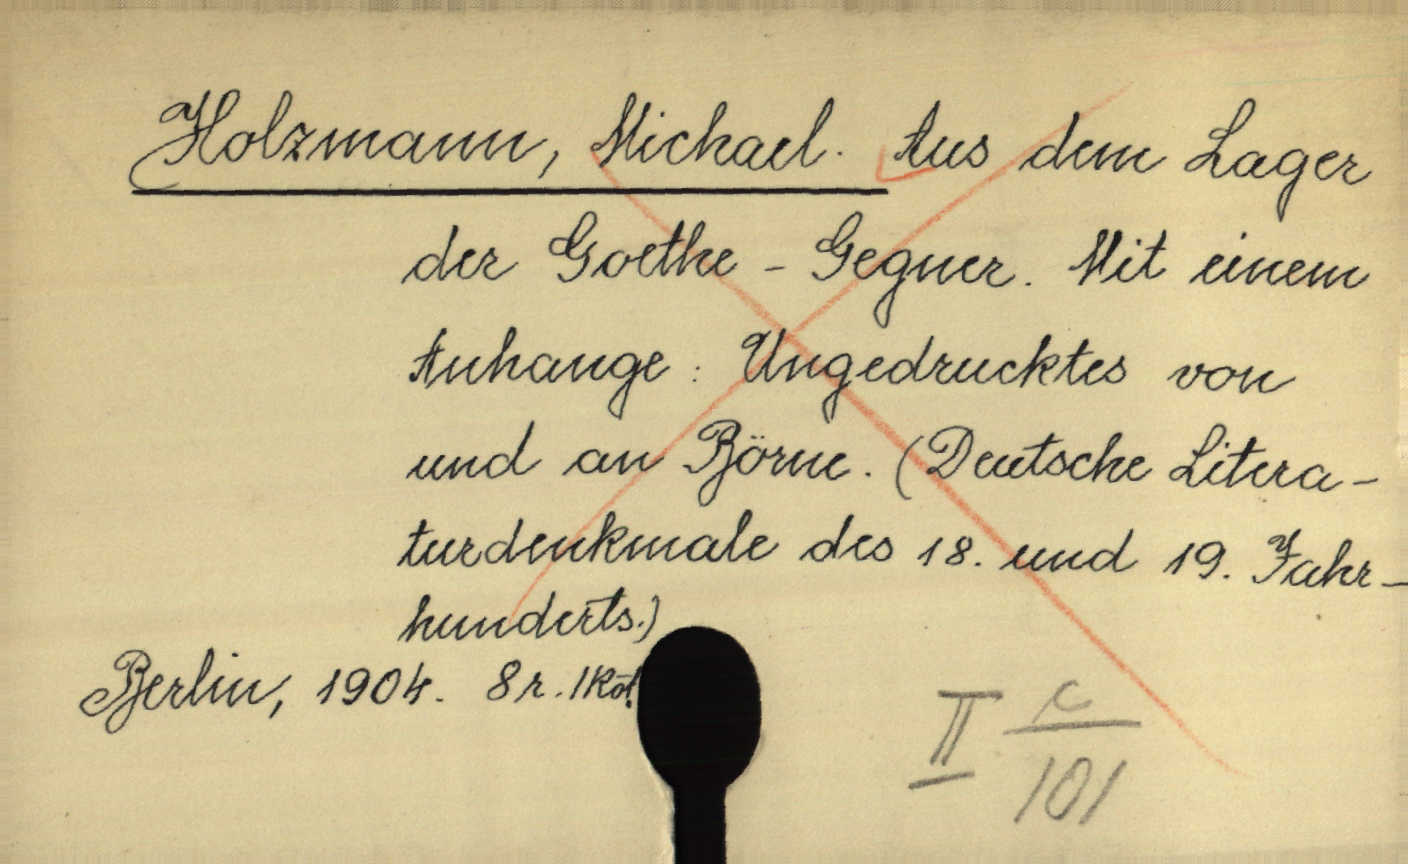 Holzmann, Michael. Aus dem Lager
der Goethe - Gegner. Mit einem
Anhange: Ungedrucktes von
und an Börne. (Deutsche Litera-
turdenkmale des 18. und 19. Jahr-
hunderts.)
Berlin, 1904. 8r. 1 Köt.
II c/101